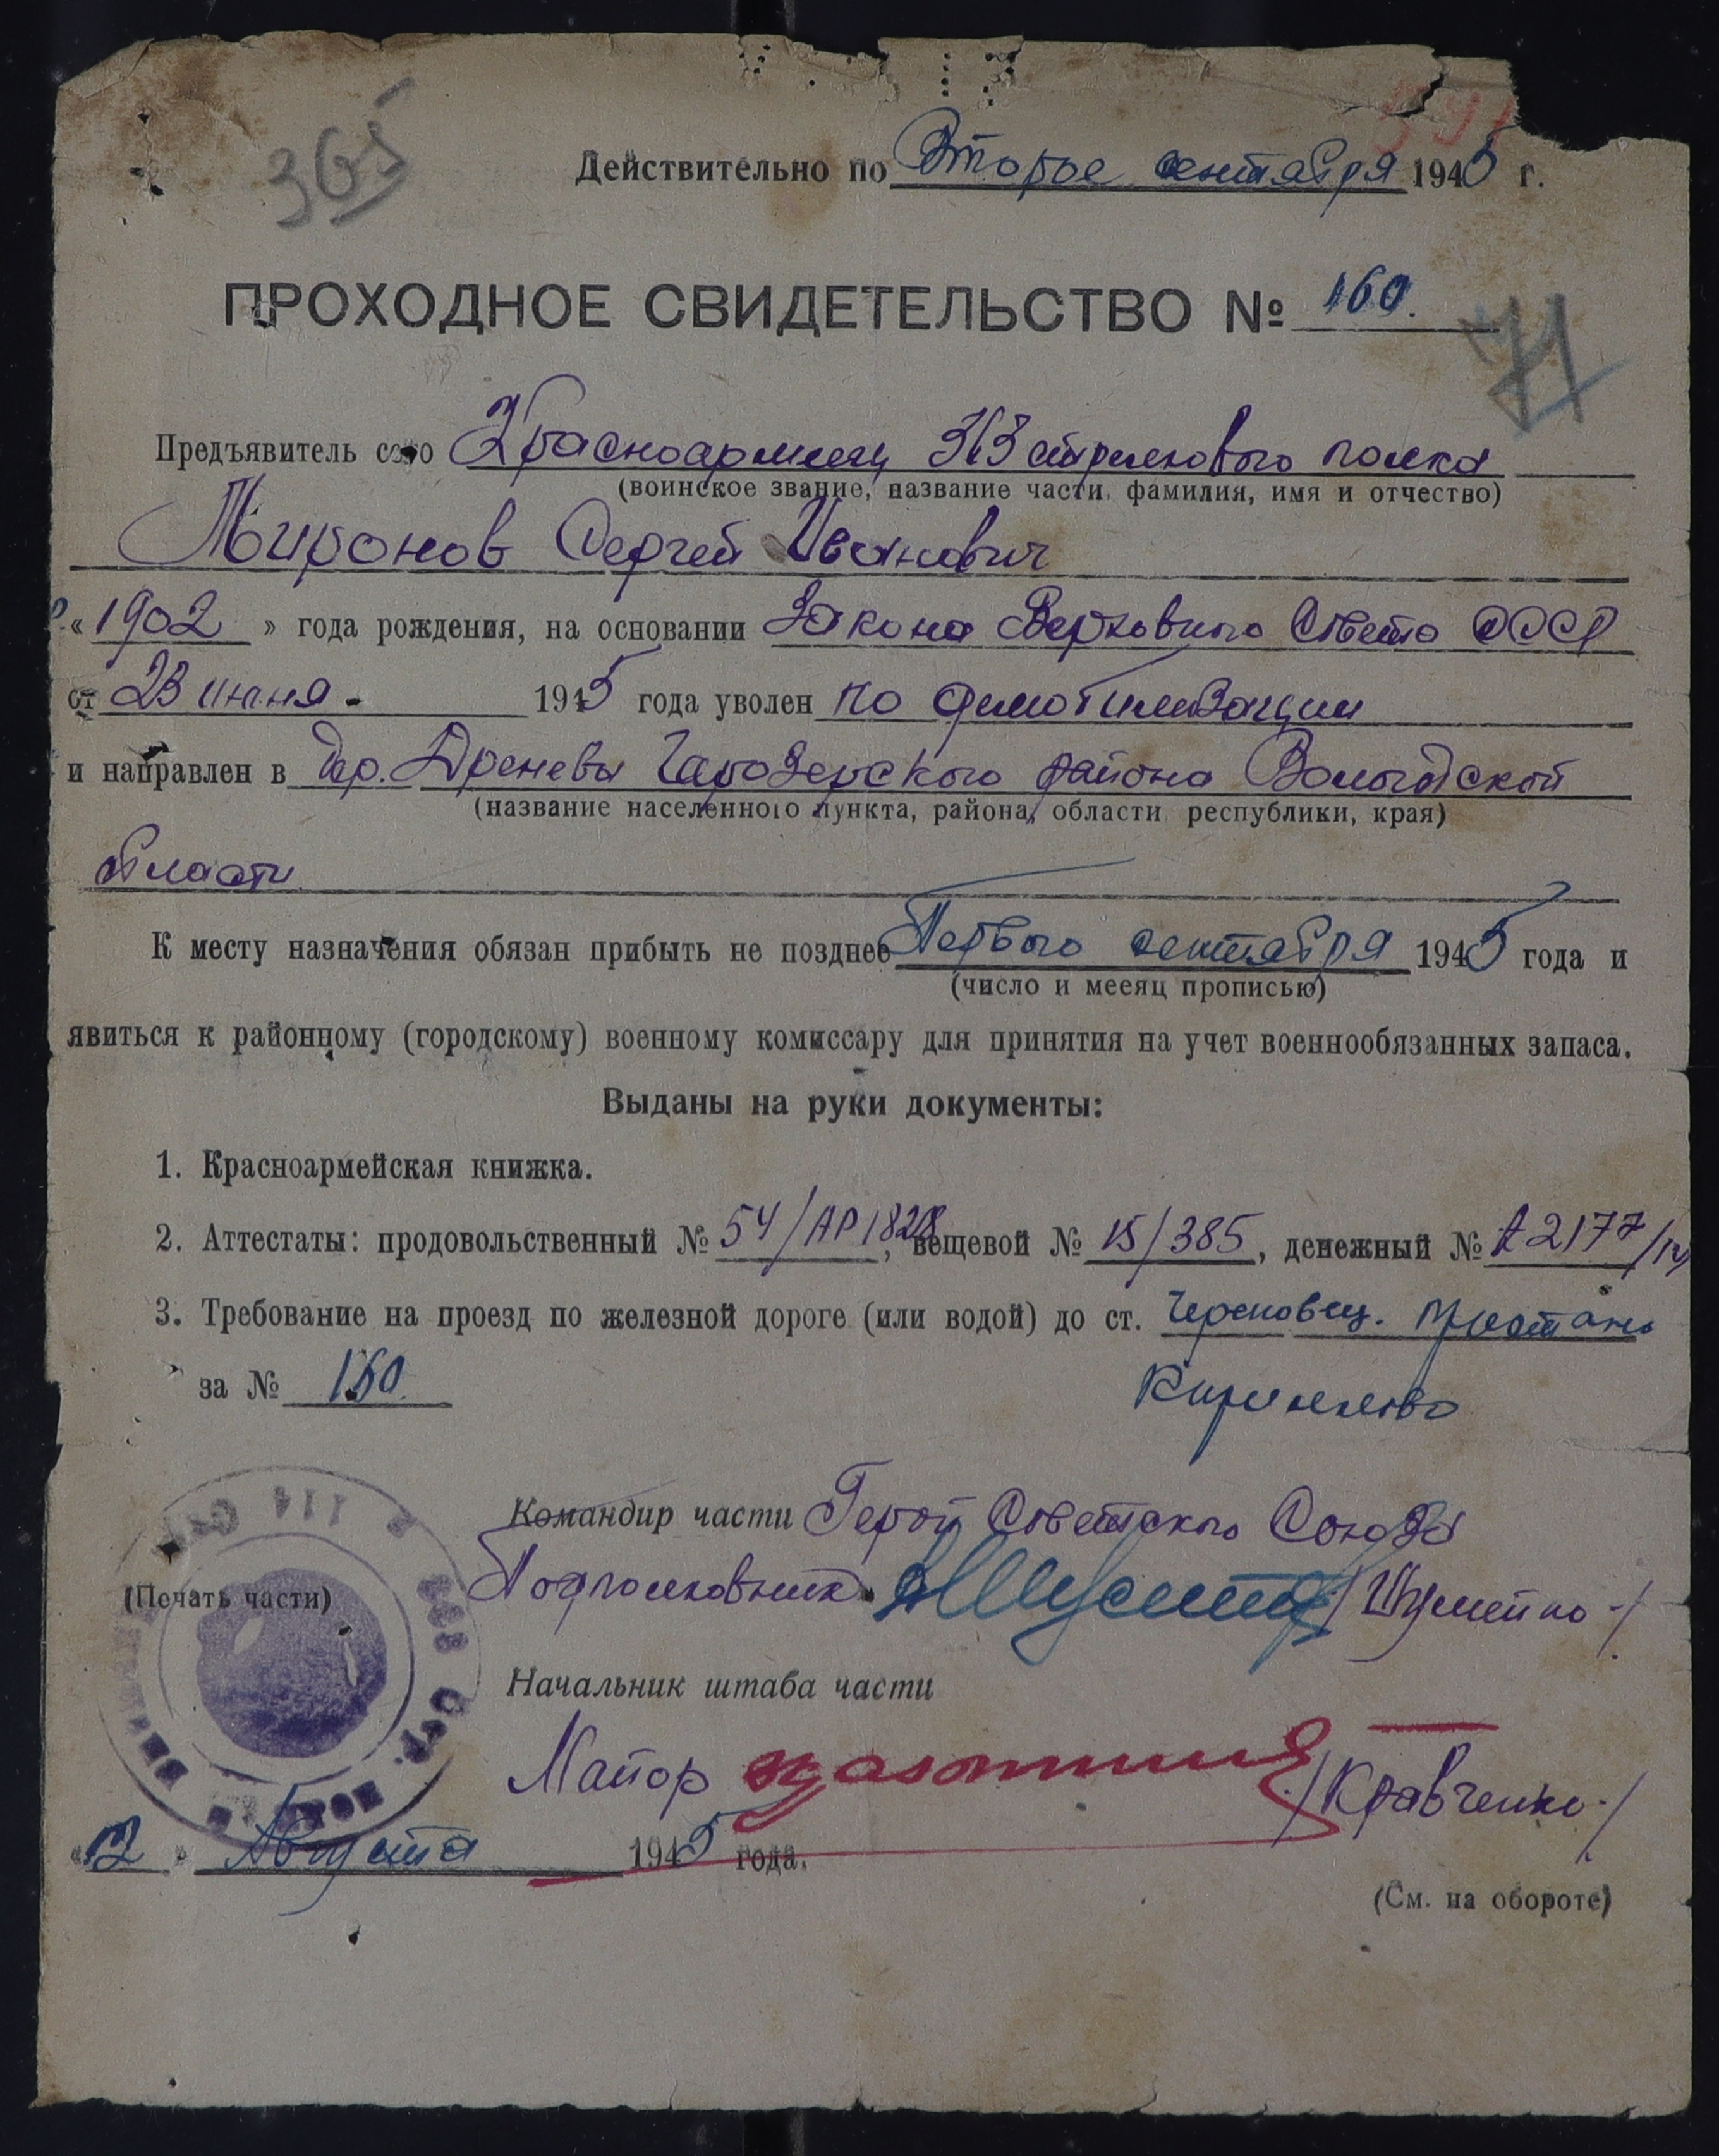 365
Действительно по Второе сентября 1945 г.
ПРОХОДНОЕ СВИДЕТЕЛЬСТВО № 160.
71
Предъявитель сего Красноармеец 363 стрелкового полка
(воинское звание, название части, фамилия, имя и отчество)
Миронов Сергей Иванович
«1902» года рождения, на основании Закона Верховного Совета СССР
от 23 июня - 1945 года уволен по демобилизации
и направлен в дер. Дреневы Чарозерского района Вологодской
(название населенного пункта, района, области республики, края)
области
К месту назначения обязан прибыть не позднее Первого сентября 1945 года и
(число и месяц прописью)
явиться к районному (городскому) военному комиссару для принятия на учет военнообязанных запаса.
Выданы на руки документы:
1. Красноармейская книжка.
2. Аттестаты: продовольственный № 54/АР1828, вещевой № 15/385, денежный № 2177
3. Требование на проезд по железной дороге (или водой) до ст. Череповец. пристань
за № 160. Кириллово
Командир части Герой Советского Союза
(Печать части) Подполковник /Шумейко-/
Начальник штаба части
Майор /Кравченко-/
«12» Августа 1945 года.
(См. на обороте)